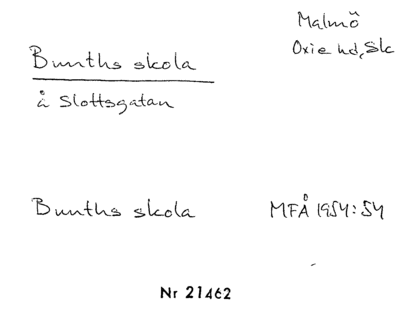 Malmö
Oxie hd, Sk
Bunths skola
å Slottsgatan
Bunths skola MFÅ 1954:54
Nr 21462